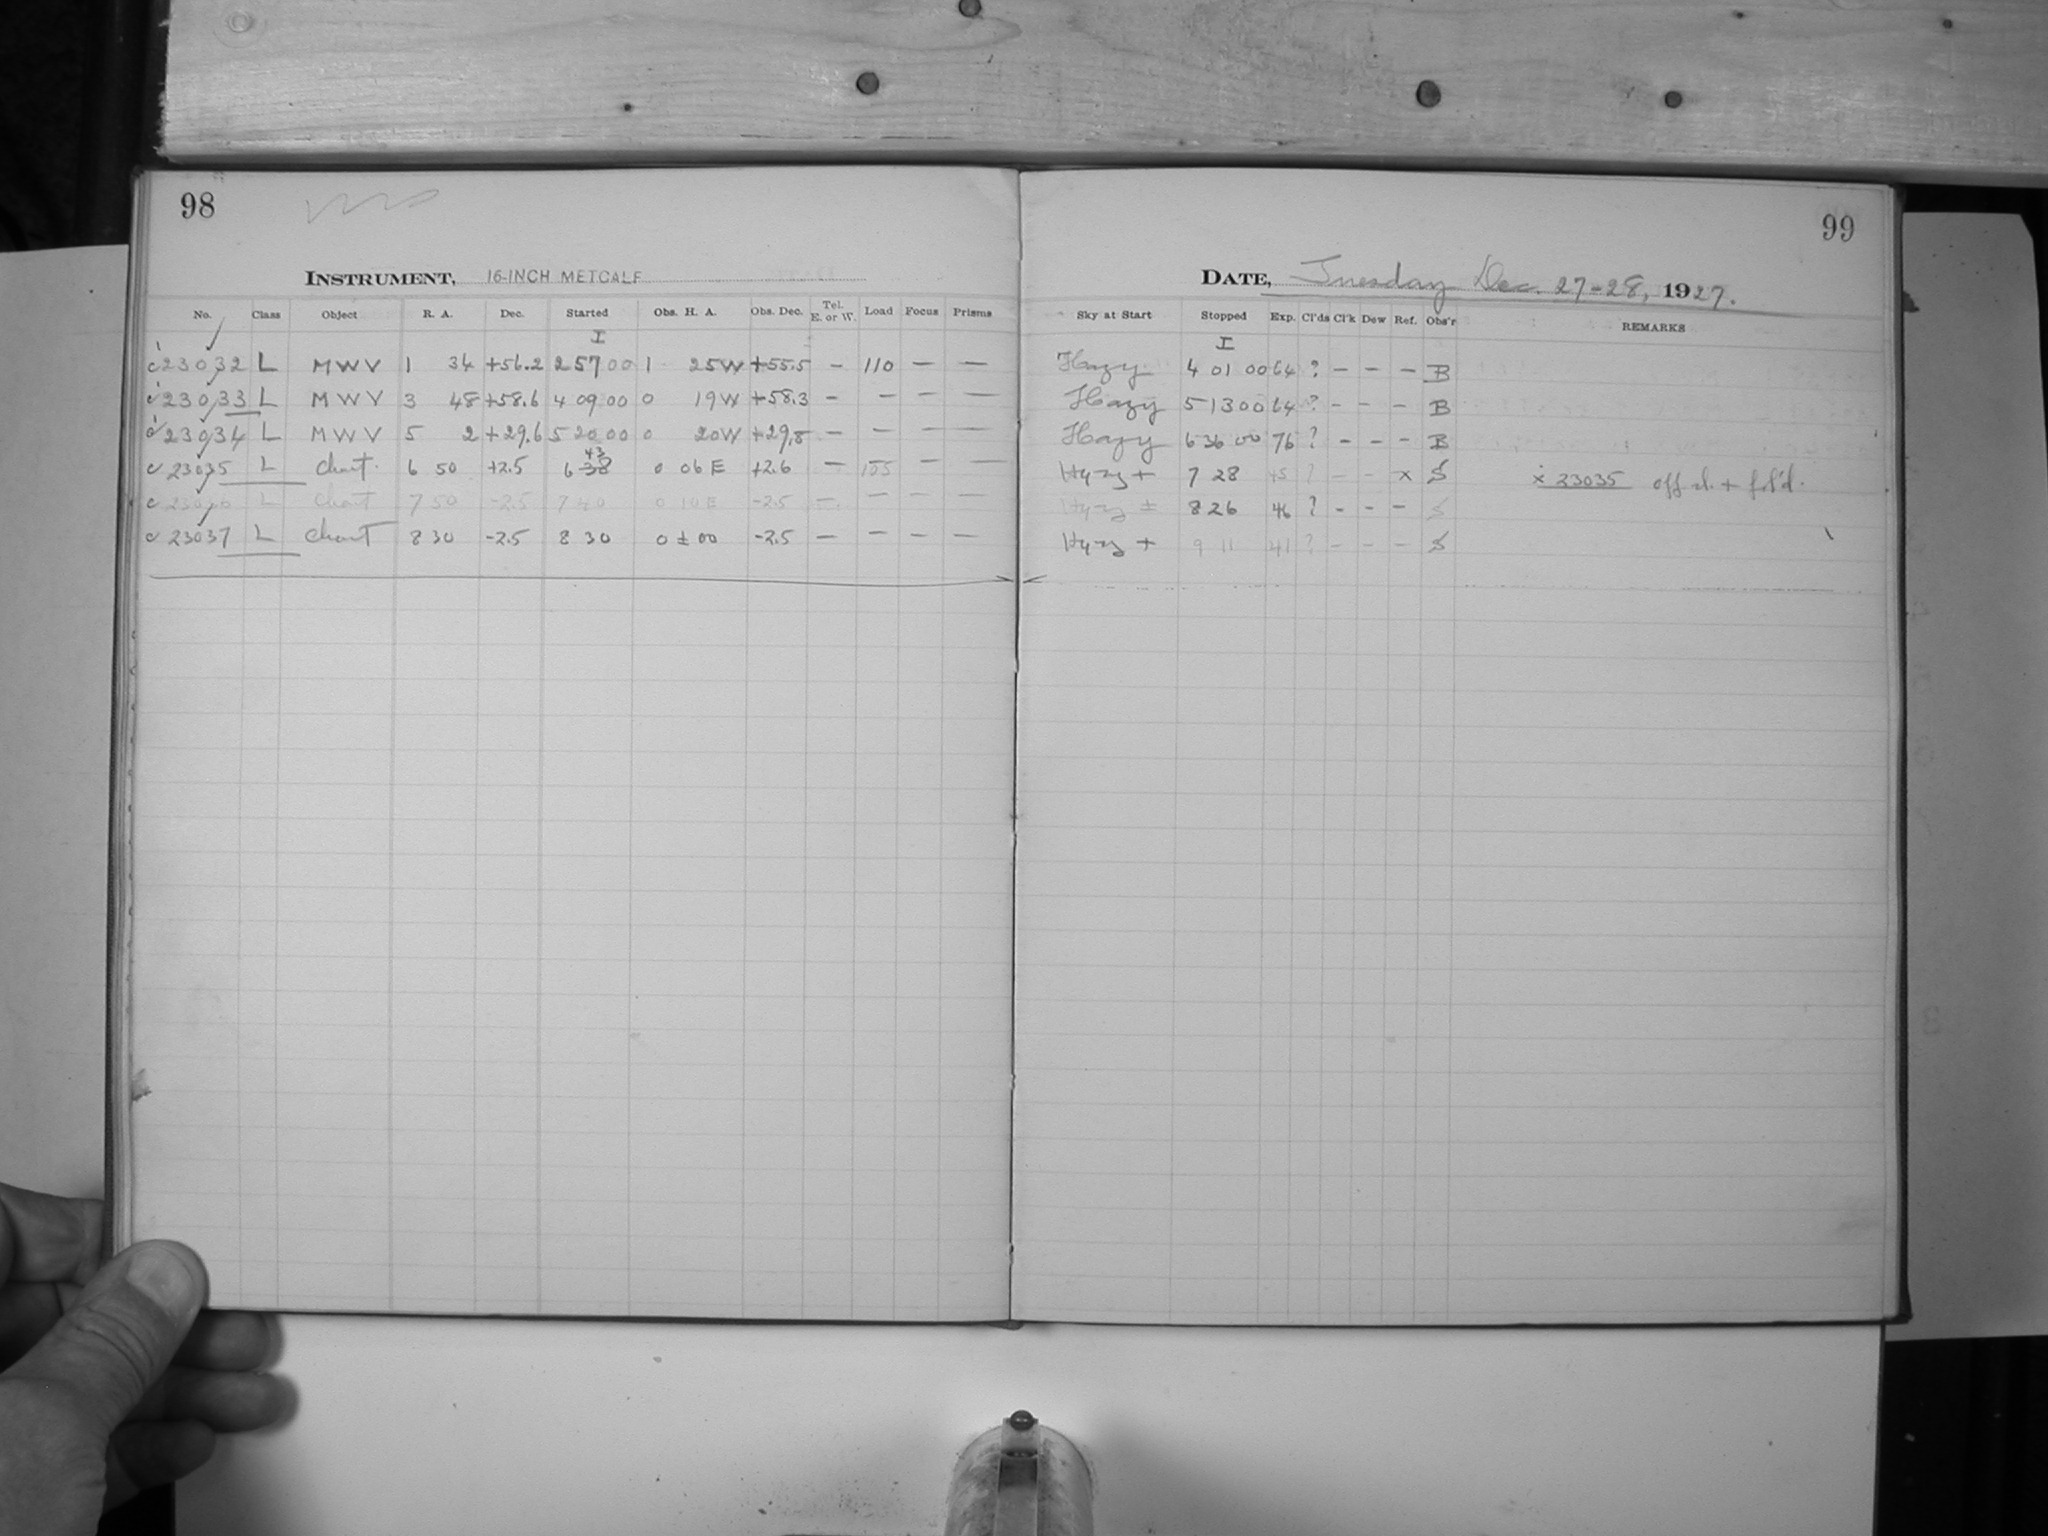 98
INSTRUMENT, 16-INCH METCALF
No. Class Object R. A. Dec. Started Obs. H. A. Obs. Dec. Tel. E. or W. Load Focus Prisms
I
c 23032 L MWV 1 34 +56.2 2 57 00 1 25W +55.5 – 110 — —
c 23033 L MWV 3 48 +58.6 4 09 00 0 19W +58.3 – — — —
c 23034 L MWV 5 2 +29.6 5 20 00 0 20W +29.8 — — — —
43
c 23035 L Chart. 6 50 +2.5 6 38 0 06 E +2.6 — 155 — —
c 23036 L Chart 7 50 -2.5 7 40 0 10 E -2.5 — — — —
c 23037 L Chart 8 30 -2.5 8 30 0 ± 00 -2.5 — — — —
99
DATE, Tuesday Dec. 27-28, 1927.
Sky at Start Stopped Exp. Cl'ds Cl'k Dew Ref. Obs'r REMARKS
I
Hazy 4 01 00 64 ? – – – B
Hazy 5 13 00 64 ? – – – B
Hazy 6 36 00 76 ? – – – B
Hyzy + 7 28 45 ? – – x S x 23035 off cl. + fol'd.
Hyzy ± 8 26 46 ? – – – S
Hyzy + 9 11 41 ? – – – S